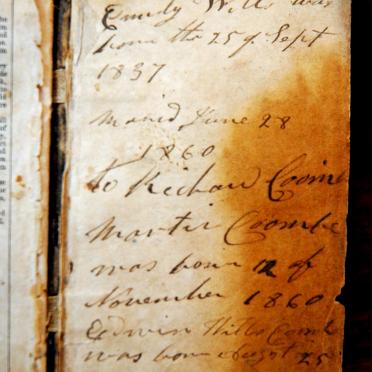 Emily Wills was
born the 25 of Sept
1837
Marid June 28
1860
to Richard Coombe
Martin Coombe
was born 12 of
November 1860
Edwin Wills Coombe
was born August 25